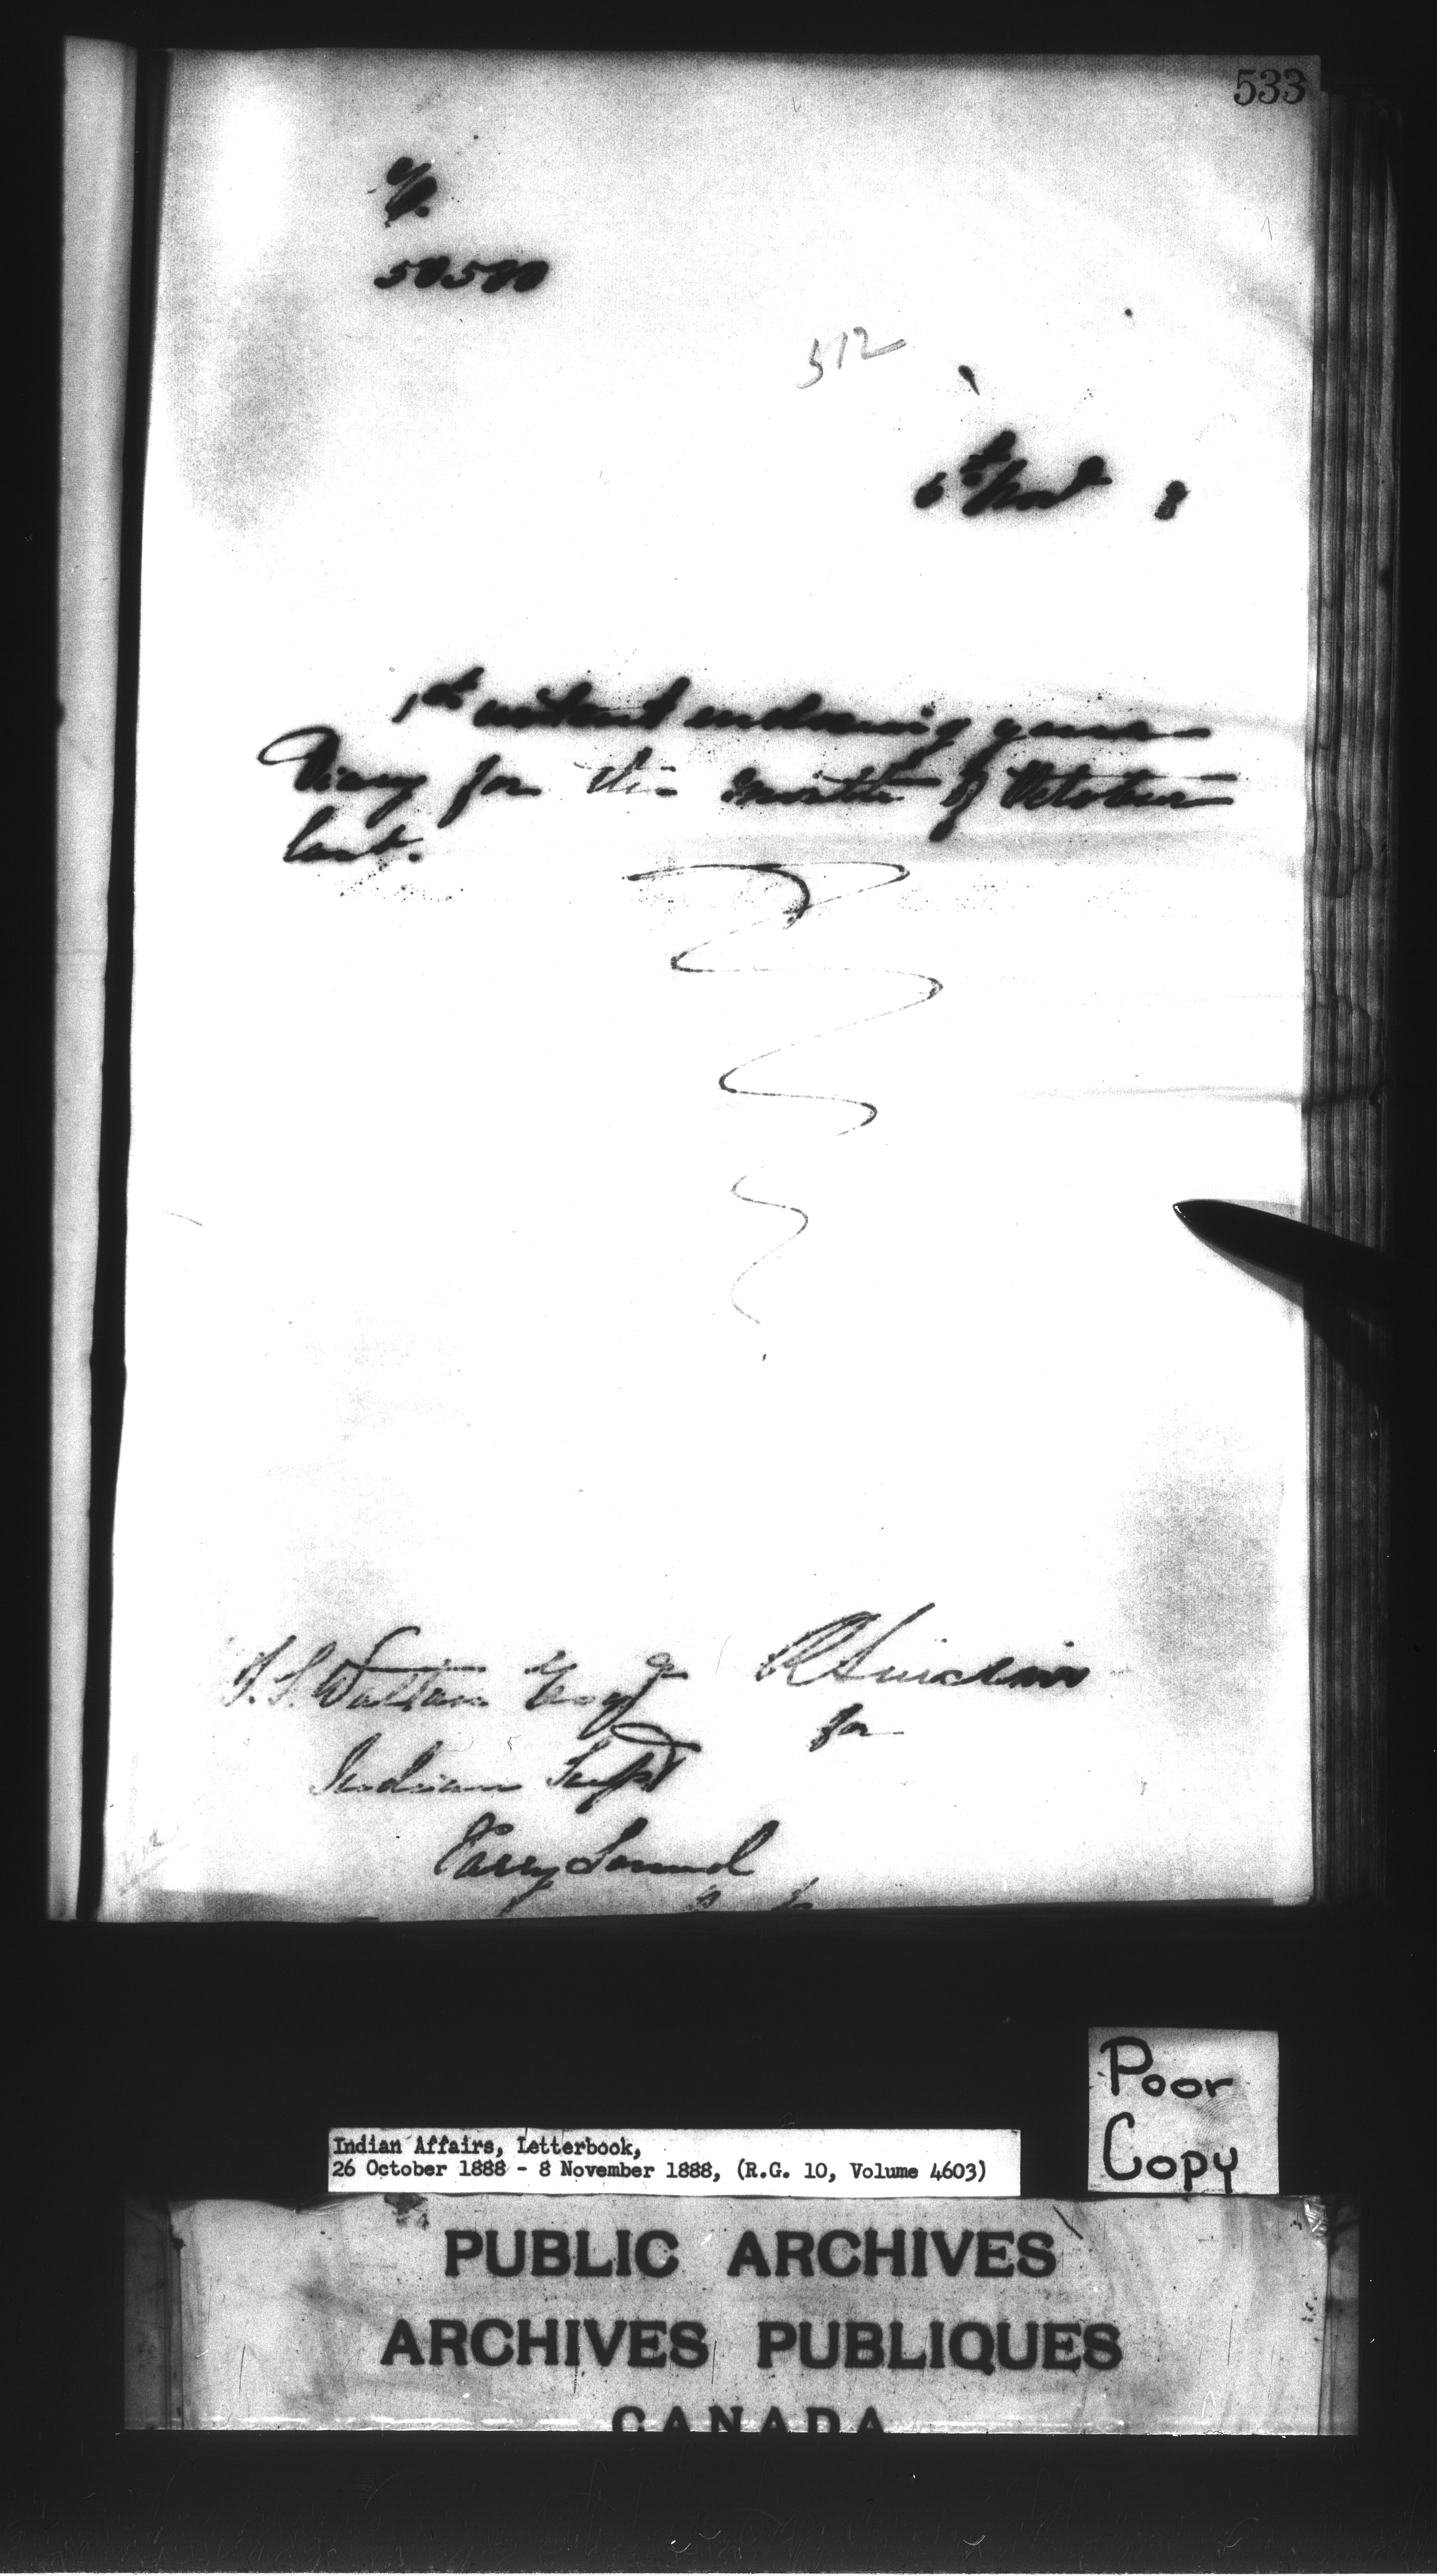 533
512
6th Novr 8
1st instant enclosing your
Diary for the month of October
last.
T.S. Walton Esqr
R Sinclair
for
Indian Supt
Parry Sound
Poor
Copy
Indian Affairs, Letterbook,
26 October 1888 - 8 November 1888, (R.G. 10, Volume 4603)
PUBLIC ARCHIVES
ARCHIVES PUBLIQUES
CANADA